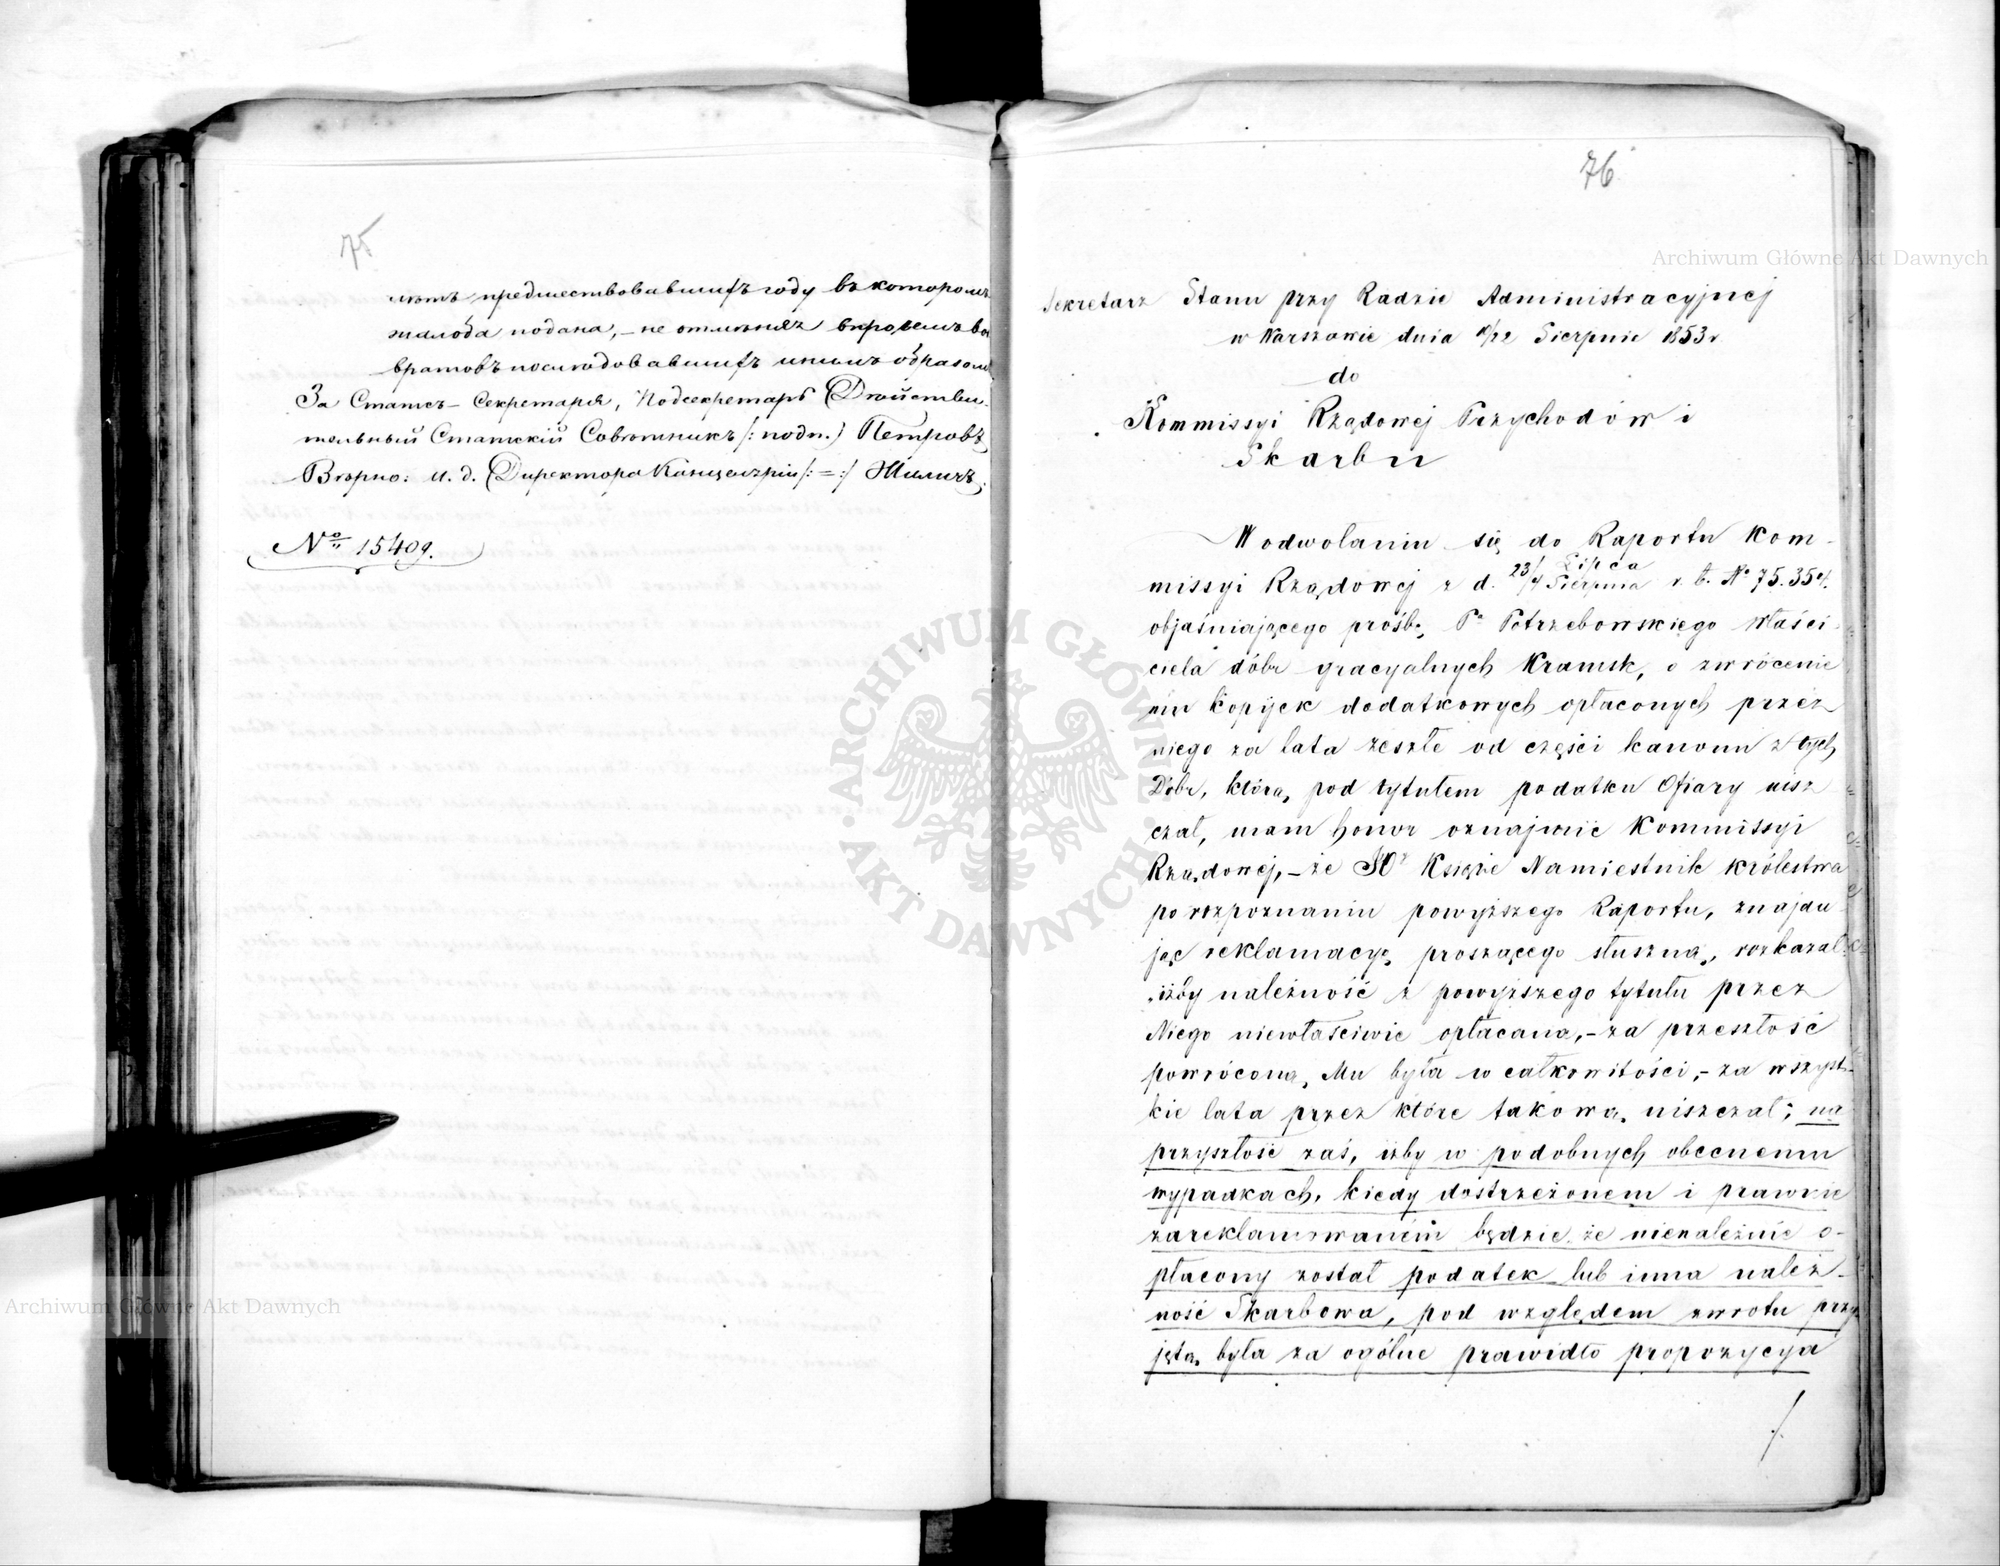 75
лѣтъ предшествовавшихъ году въ которомъ
жалоба подана, – не отмѣняя впрочемъ воз
вратовъ послѣдовавшихъ инымъ образомъ
За Статсъ – Секретаря, Подсекретарь Дѣйстви-
тельный Статскій Совѣтникъ /: подп. :/ Петровъ
Вѣрно: и. д. Директора Канцеляріи /: = :/
№ 15409.
76
Sekretarz Stanu przy Radzie Administracyjnej
w Warszawie dnia 10/22 Sierpnia 1853 r
do
Kommissyi Rządowej Przychodów i
Skarbu
W odwołaniu się do Raportu Kom-
missyi Rządowej z d. 23 Lipca / 4 Sierpnia r. b. No 75.354.
objaśniającego prośbę Pa Potrzebowskiego właści-
ciela dóbr gracyalnych Kramsk, o zwrócenie
mu kopijek dodatkowych opłaconych przez
niego za lata zeszłe od części kanonu z tych
Dóbr, którą pod tytułem podatku Ofiary uisz
czał, mam honor oznajmić Kommissyi
Rządowej, – że JOr Książe Namiestnik Królestwa
po rozpoznaniu powyższego Raportu, znajdu-
jąc reklamacyę proszącego słuszną, rozkazał:
iżby należność z powyższego tytułu przez
Niego niewłaściwie opłacana, – za przeszłość
powróconą Mu była w całkowitości, – za wszyst-
kie lata przez które takową uiszczał; na
przyszłość zaś, iżby w podobnych obecnemu
wypadkach, kiedy dostrzeżonem i prawnie
zareklamowanem będzie że nienależnie o-
płacony został podatek lub inna należ-
ność Skarbowa, pod względem zwrotu przy
jętą była za ogólne prawidło propozycya
./.
Archiwum Główne Akt Dawnych
ARCHIWUM GŁÓWNE AKT DAWNYCH
Archiwum Główne Akt Dawnych